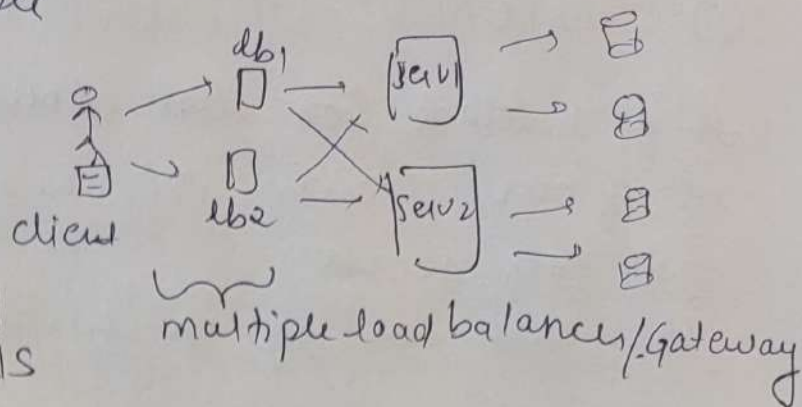 lb1
serv1
client
lb2
serv2
multiple load balancers/Gateway